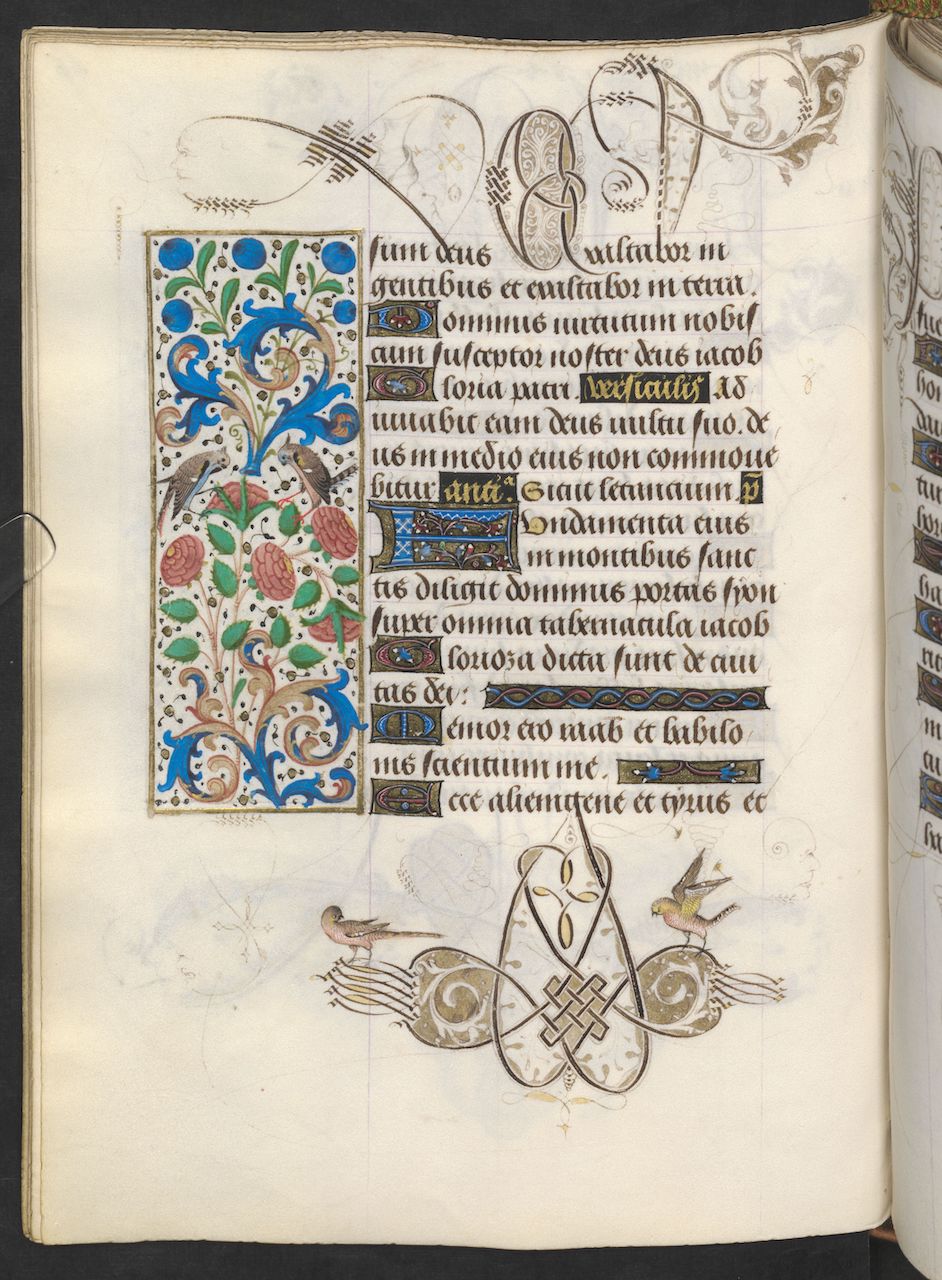 sum deus Exaltabor in
gentibus et exaltabor in terra.
Dominus uirtutum nobis
cum susceptor noster deus iacob
Gloria patri. Versiculus Ad
iuuabit eam deus uultu suo. de
us in medio eius non commoue
bitur anti.ª Sicut letancium. p̄
Fundamenta eius
in montibus sanc
tis diligit dominus portas syon
super omnia tabernacula iacob
Glorioza dicta sunt de ciui
tas dei:
Memor ero raab et babilo
nis scientium me.
Ecce alienigene et tyrus et